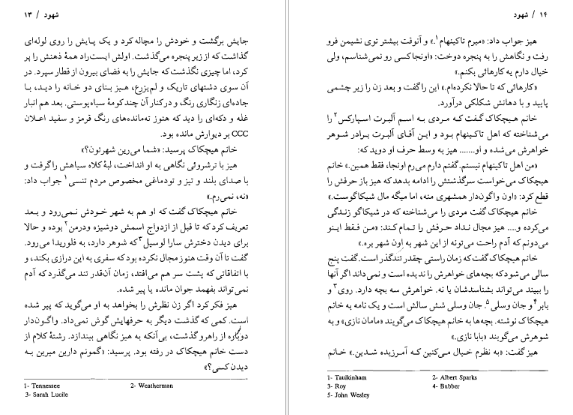 شهود / ۱۳
جایش برگشت و خودش را مچاله کرد و یک پایش را روی لوله‌ای
گذاشت که از زیر پنجره می‌گذشت. اولش ایست‌راد همهٔ ذهنش را پر
کرد، اما چیزی نگذشت که جایش را به فضای بیرون از قطار سپرد. در
آن سوی دشتهای تاریک و لم‌یزرع، هیز بنای دو خانه را دید، با
جاده‌ای زنگاری رنگ و در کنار آن چند کومهٔ سیاه‌پوستی. بعد هم انبار
غله و دکه‌ای را دید که هنوز ته‌مانده‌های رنگ قرمز و سفید اعلان
CCC بر دیوارش مانده بود.
خانم هیچکاک پرسید: «شما می‌رین شهرتون؟»
هیز با ترشروئی نگاهی به او انداخت، لبهٔ کلاه سیاهش را گرفت و
با صدای بلند و تیز و تودماغی مخصوص مردم تنسی۱ جواب داد:
«نه، نمی‌رم.»
خانم هیچکاک گفت که او هم به شهر خودش نمی‌رود و بعد
تعریف کرد که تا قبل از ازدواج اسمش دوشیزه ودرمن۲ بوده، و حالا
برای دیدن دخترش سارا لوسیل۳ که شوهر دارد، به فلوریدا می‌رود.
گفت تا آن وقت هنوز مجال نکرده بود که سفری به این درازی بکند، و
با اتفاقاتی که پشت سر هم می‌افتد، زمان آن‌قدر تند می‌گذرد که آدم
نمی‌تواند بفهمد جوان مانده یا پیر شده.
هیز فکر کرد اگر زن نظرش را بخواهد به او می‌گوید که پیر شده
است. کمی که گذشت دیگر به حرفهایش گوش نمی‌داد. واگون‌دار
دوباره از راهرو گذشت، بی‌آنکه به هیز نگاهی بیندازد. رشتهٔ کلام از
دست خانم هیچکاک در رفته بود. پرسید: «گمونم دارین میرین به
دیدن کسی؟»
1- Tennessee 2- Weatherman
3- Sarah Lucile
۱۴ / شهود
هیز جواب داد: «میرم تاکینهام۱.» و آنوقت بیشتر توی نشیمن فرو
رفت و نگاهش را به پنجره دوخت: «اونجا کسی رو نمی‌شناسم، ولی
خیال دارم یه کارهائی بکنم.»
«کارهائی که تا حالا نکرده‌ام.» این را گفت و بعد زن را زیر چشمی
پایید و با دهانش شکلکی درآورد.
خانم هیچکاک گفت که مردی به اسم آلبرت اسپارکس۲ را
می‌شناخته که اهل تاکینهام بود و این آقای آلبرت برادر شوهر
خواهرش می‌شده و او...... هیز به وسط حرف او دوید که:
«من اهل تاکینهام نیستم. گفتم دارم می‌رم اونجا، فقط همین.» خانم
هیچکاک می‌خواست سرگذشتش را ادامه بدهد که هیز باز حرفش را
قطع کرد: «اون واگون‌دار همشهری منه، اما میگه مال شیکاگوست.»
خانم هیچکاک گفت مردی را می‌شناخته که در شیکاگو زندگی
می‌کرده و.... هیز مجال نداد حرفش را تمام کند: «من فقط اینو
می‌دونم که آدم راحت می‌تونه از این شهر به اون شهر بره.»
خانم هیچکاک گفت که زمان راستی چقدر تند گذر است. گفت پنج
سالی می‌شود که بچه‌های خواهرش را ندیده است و نمی‌داند اگر آنها
را ببیند می‌تواند بشناسدشان یا نه. خواهرش سه بچه دارد. روی۳ و
بابر۴ و جان وسلی۵. جان وسلی شش سالش است و یک نامه به خانم
هیچکاک نوشته. بچه‌ها به خانم هیچکاک می‌گویند «مامان نازی» و به
شوهرش می‌گویند «بابا نازی.»
هیز گفت: «به نظرم خیال می‌کنین که آمرزیده شدین.» خانم
1- Taulkinham 2- Albert Sparks
3- Roy 4- Bubber
5- John Wesley